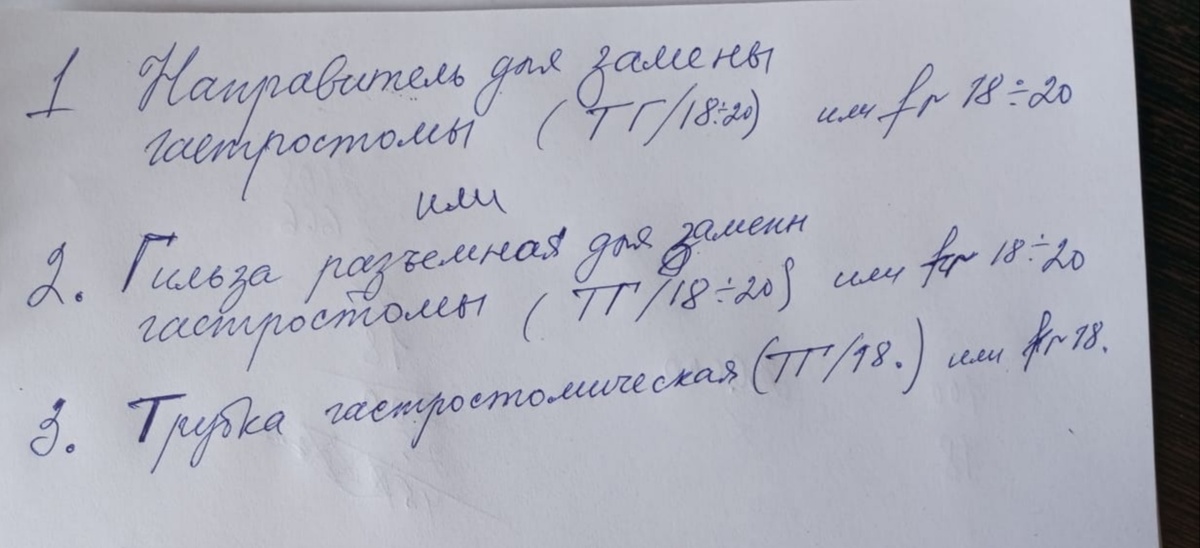 1 Направитель для замены
гастростомы ( ТГ/18÷20) или fr 18÷20
или
2. Гильза разъемная для замены
гастростомы ( ТГ/18÷20) или fr 18÷20
3. Трубка гастростомическая (ТГ/18.) или fr 18.